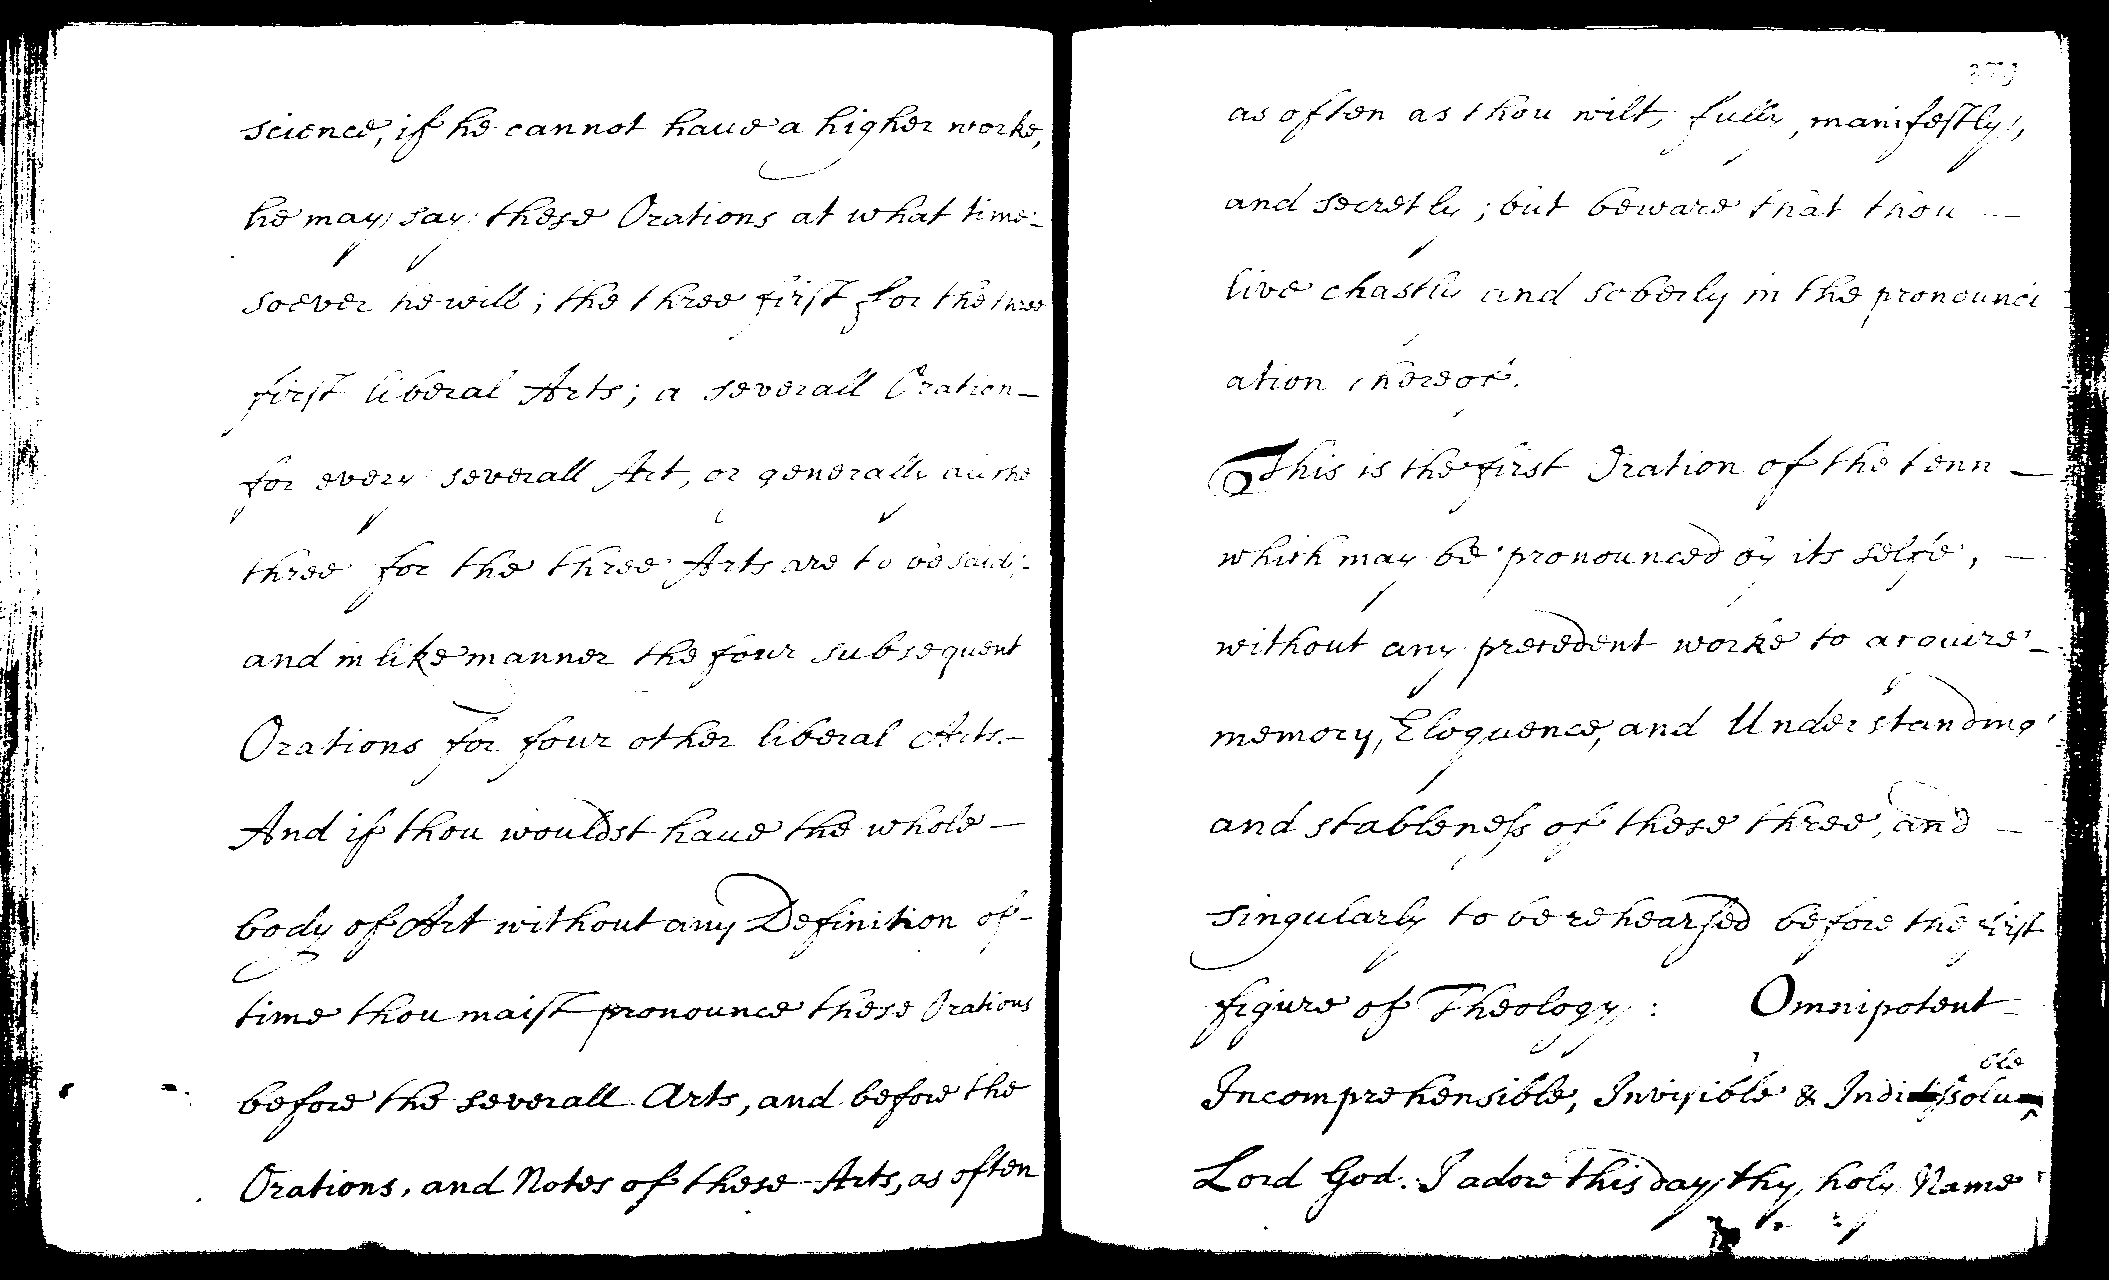 science, if he cannot haue a higher worke,
he may say these Orations at what time
soever he will; the three first for the three
first liberal Arts; a severall Oration
for every severall Art, or generally all the
three for the three Arts are to be said;
and in like manner the four subsequent
Orations for four other liberal Arts.
And if thou wouldst haue the whole
body of Art without any Definition of
time thou maist pronounce these Orations
before the severall Arts, and before the
Orations, and Notes of these Arts, as often
as often as thou wilt, fully, manifestly,
and secretly; but beware that thou
live chastly and soberly in the pronounci
ation thereof.
This is the first Oration of the tenn
which may be pronounced by its selfe,
without any precedent worke to acquire
memory, Eloquence, and Understanding
and stableness of these three, and
singularly to be rehearsed before the first
figure of Theology: Omnipotent
Incomprehensible, Invisible & Indissoluble
Lord God. I adore this day thy holy Name